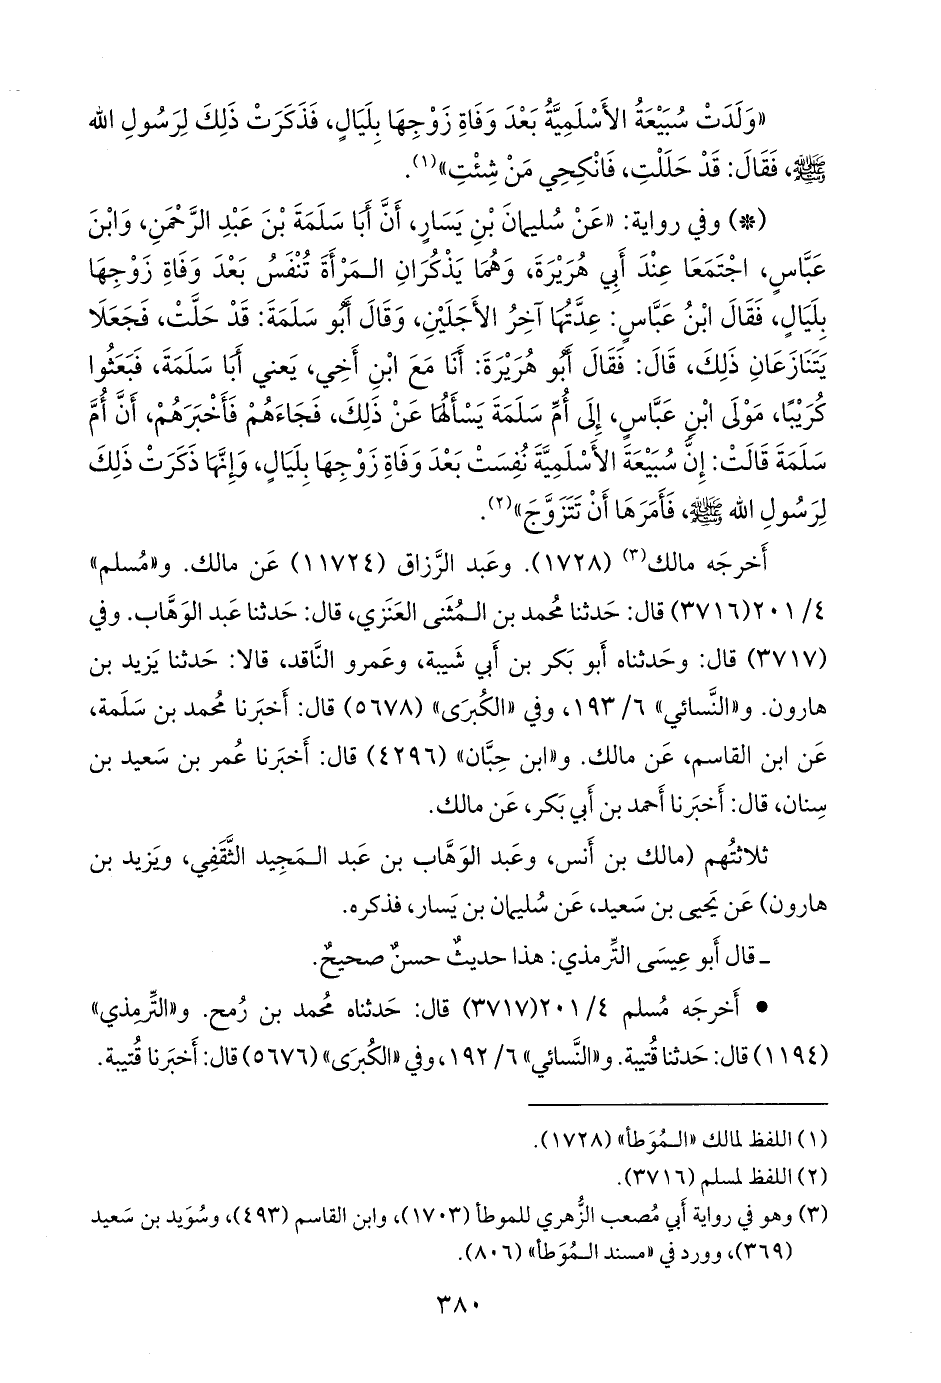 «وَلَدَتْ سُبَيْعَةُ الأَسْلَمِيَّةُ بَعْدَ وَفَاةِ زَوْجِهَا بِلَيَالٍ، فَذَكَرَتْ ذَلِكَ لِرَسُولِ الله
ﷺ، فَقَالَ: قَدْ حَلَلْتِ، فَانْكِحِي مَنْ شِئْتِ»(١).
(*) وفي رواية: «عَنْ سُلَيمانَ بْنِ يَسَارٍ، أَنَّ أَبَا سَلَمَةَ بْنَ عَبْدِ الرَّحْمَنِ، وَابْنَ
عَبَّاسٍ، اجْتَمَعَا عِنْدَ أَبِي هُرَيْرَةَ، وَهُمَا يَذْكُرَانِ الـمَرْأَةَ تُنْفَسُ بَعْدَ وَفَاةِ زَوْجِهَا
بِلَيَالٍ، فَقَالَ ابْنُ عَبَّاسٍ: عِدَّتُهَا آخِرُ الأَجَلَيْنِ، وَقَالَ أَبُو سَلَمَةَ: قَدْ حَلَّتْ، فَجَعَلَا
يَتَنَازَعَانِ ذَلِكَ، قَالَ: فَقَالَ أَبُو هُرَيْرَةَ: أَنَا مَعَ ابْنِ أَخِي، يَعني أَبَا سَلَمَةَ، فَبَعَثُوا
كُرَيْبًا، مَوْلَى ابْنِ عَبَّاسٍ، إِلَى أُمِّ سَلَمَةَ يَسْأَلُهَا عَنْ ذَلِكَ، فَجَاءَهُمْ فَأَخْبَرَهُمْ، أَنَّ أُمَّ
سَلَمَةَ قَالَتْ: إِنَّ سُبَيْعَةَ الأَسْلَمِيَّةَ نُفِسَتْ بَعْدَ وَفَاةِ زَوْجِهَا بِلَيَالٍ، وَإِنَّهَا ذَكَرَتْ ذَلِكَ
لِرَسُولِ الله ﷺ، فَأَمَرَهَا أَنْ تَتَزَوَّجَ»(٢).
أَخرجَه مالك(٣) (١٧٢٨). وعَبد الرَّزاق (١١٧٢٤) عَن مالك. و«مُسلم»
٤/ ٢٠١(٣٧١٦) قال: حَدثنا مُحمد بن الـمُثَنى العَنَزي، قال: حَدثنا عَبد الوَهَّاب. وفي
(٣٧١٧) قال: وحَدثناه أَبو بَكر بن أَبي شَيبة، وعَمرو النَّاقد، قالا: حَدثنا يَزيد بن
هارون. و«النَّسائي» ٦/ ١٩٣، وفي «الكُبرَى» (٥٦٧٨) قال: أَخبَرنا مُحمد بن سَلَمة،
عَن ابن القاسم، عَن مالك. و«ابن حِبَّان» (٤٢٩٦) قال: أَخبَرنا عُمر بن سَعيد بن
سِنان، قال: أَخبَرنا أَحمد بن أَبي بَكر، عَن مالك.
ثلاثتُهم (مالك بن أَنس، وعَبد الوَهَّاب بن عَبد الـمَجيد الثَّقَفي، ويَزيد بن
هارون) عَن يَحيى بن سَعيد، عَن سُليمان بن يَسار، فذكره.
ـ قال أَبو عِيسَى التِّرمذي: هذا حديثٌ حسنٌ صحيحٌ.
• أَخرجَه مُسلم ٤/ ٢٠١(٣٧١٧) قال: حَدثناه مُحمد بن رُمح. و«التِّرمِذي»
(١١٩٤) قال: حَدثنا قُتيبة. و«النَّسائي» ٦/ ١٩٢، وفي «الكُبرَى» (٥٦٧٦) قال: أَخبَرنا قُتيبة.
(١) اللفظ لمالك «الـمُوَطأ» (١٧٢٨).
(٢) اللفظ لمسلم (٣٧١٦).
(٣) وهو في رواية أَبي مُصعب الزُّهري للموطأ (١٧٠٣)، وابن القاسم (٤٩٣)، وسُوَيد بن سَعيد
(٣٦٩)، وورد في «مسند الـمُوَطأ» (٨٠٦).
٣٨٠